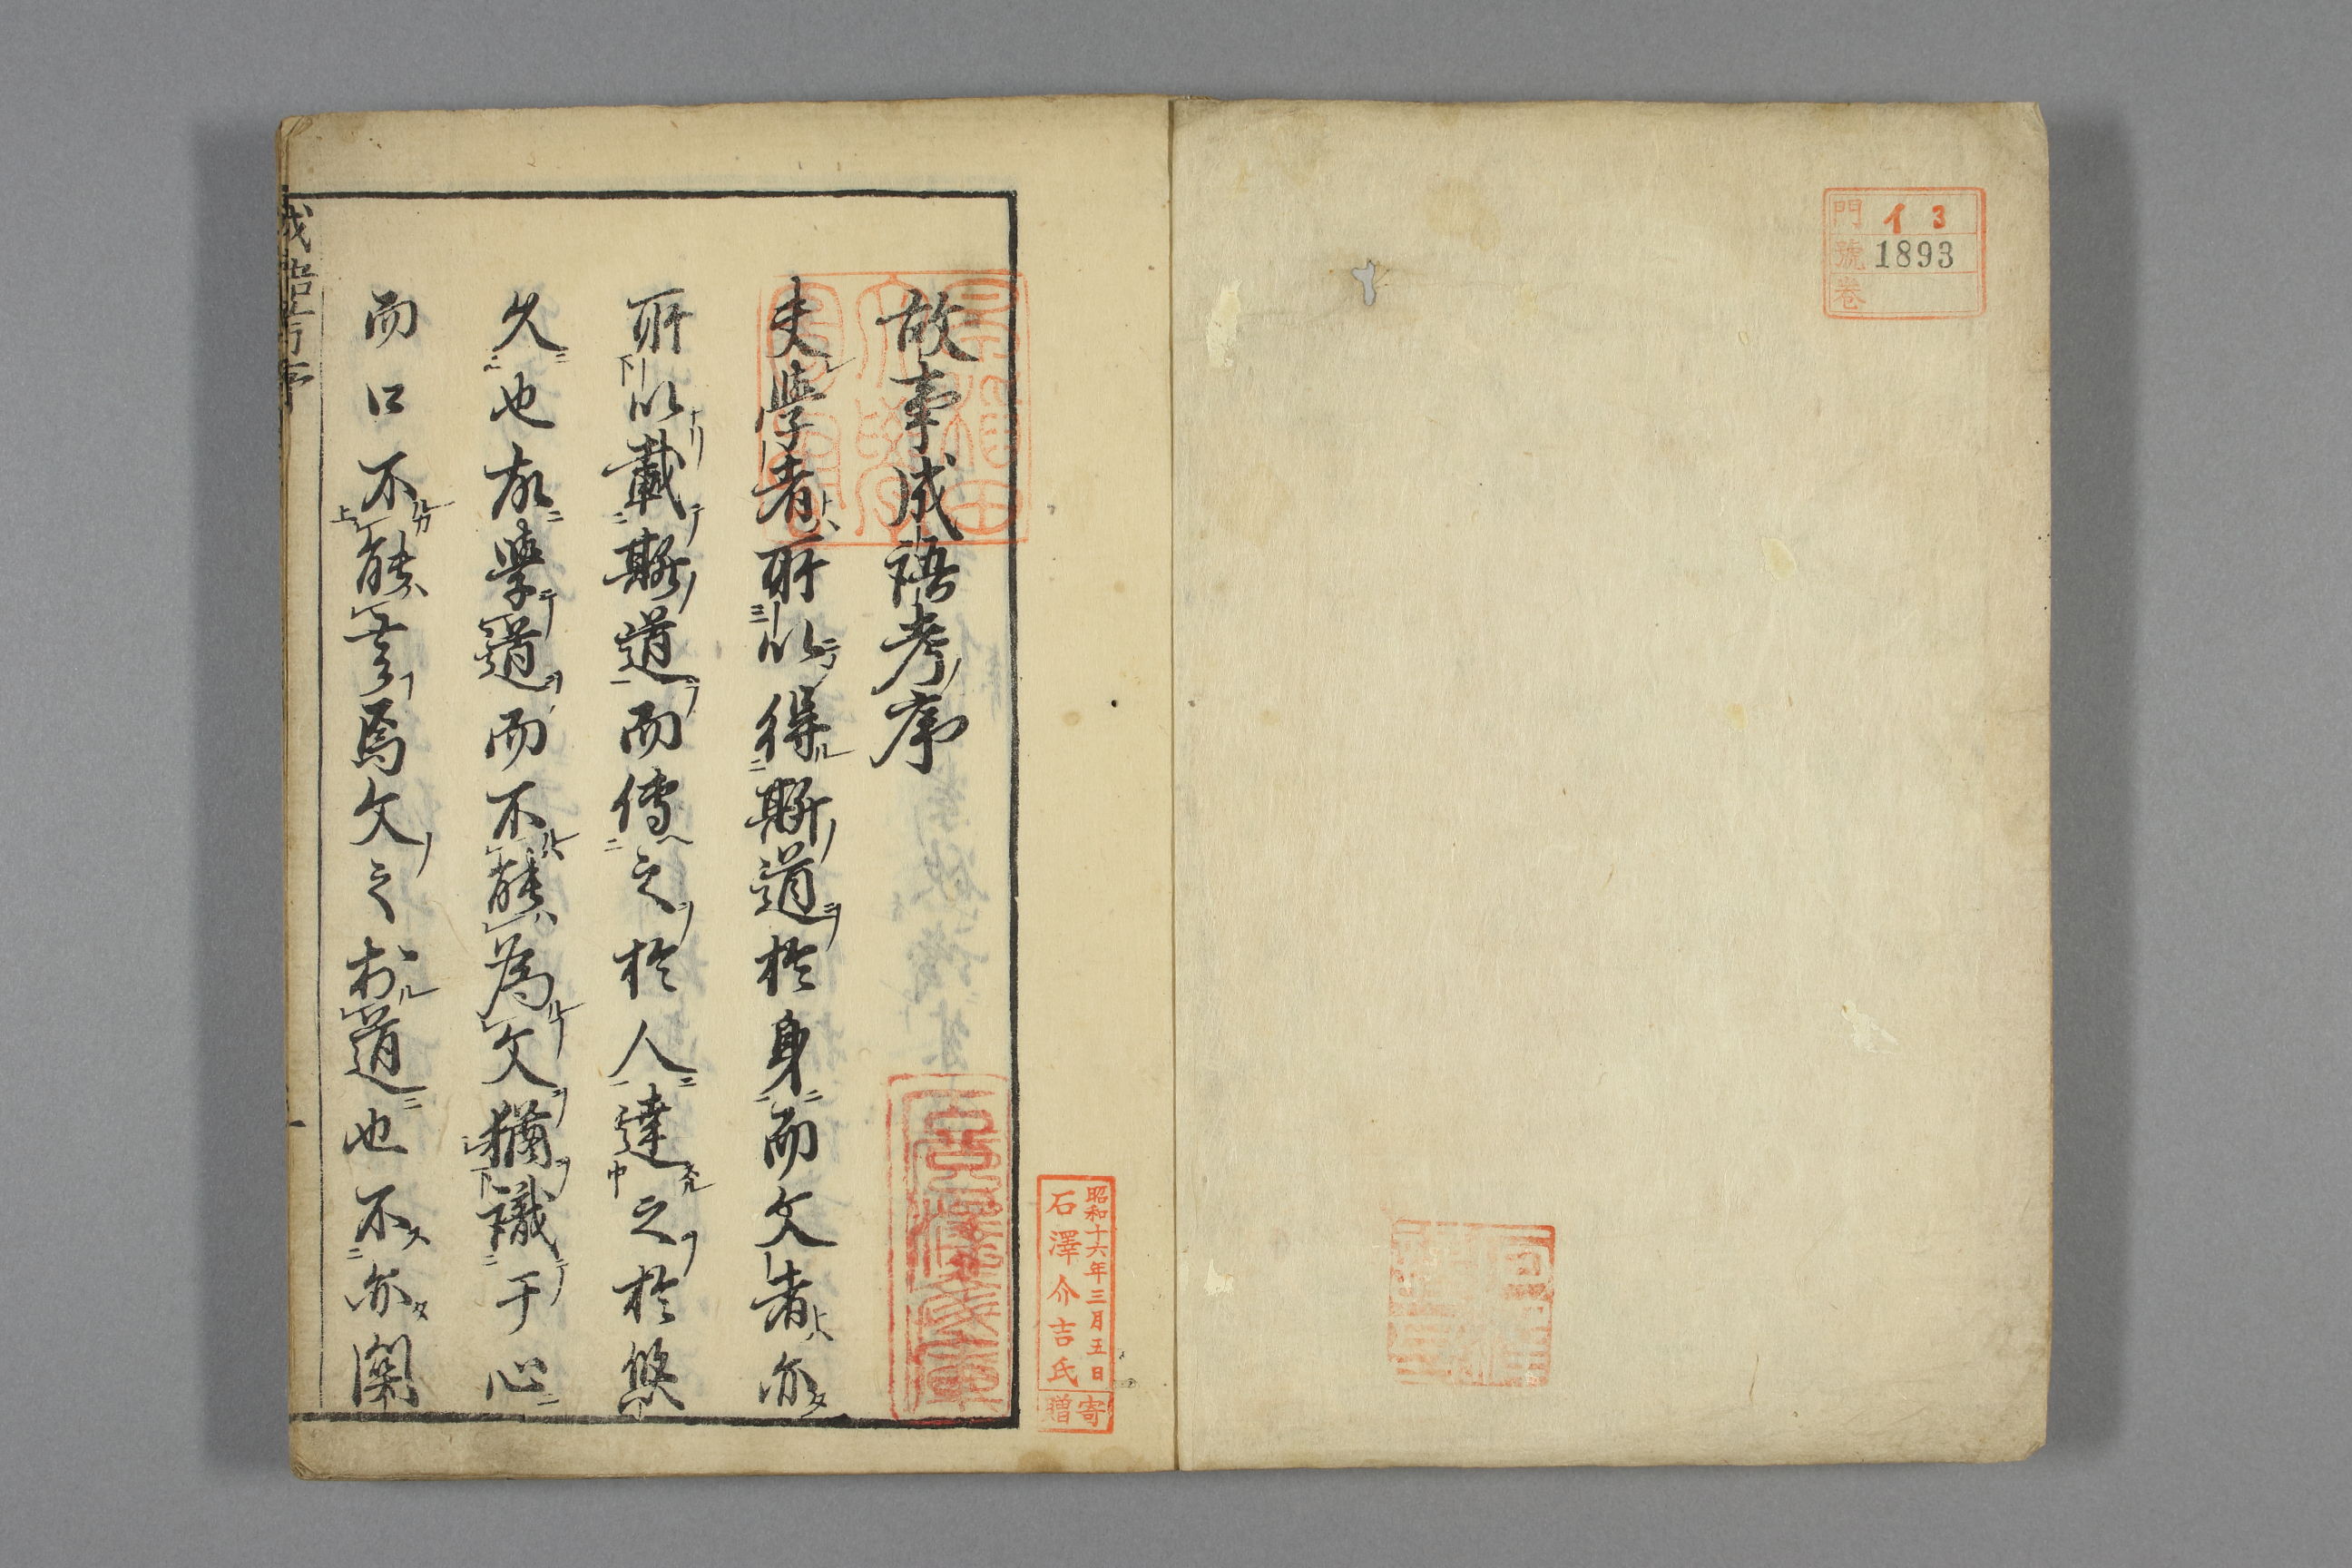 門 イ3
號 1893
卷
昭和十六年三月五日
石澤介吉氏
寄贈
早稲田
大學
圖書
故事成語考序
夫學者所以得斯道於身而文者亦
所以載斯道而傳之於人達之於悠
久也故學道而不能為文猶識于心
而口不能言焉文之於道也不亦闗
成語考序
一